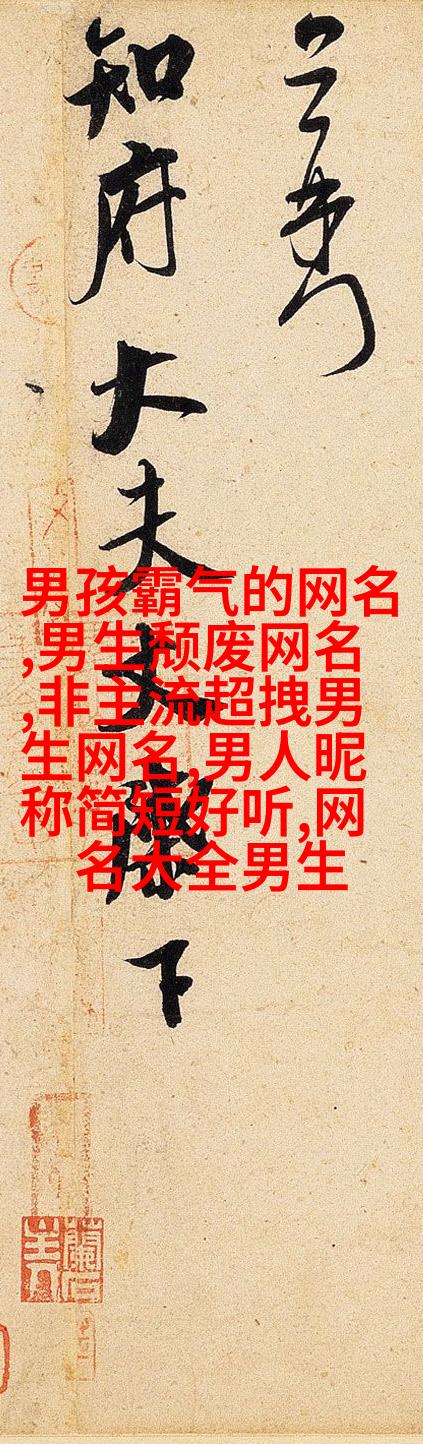 知府大夫下
男孩霸气的网名
,男生颓废网名
,非主流超拽男
生网名,男人昵
称简短好听,网
名大全男生